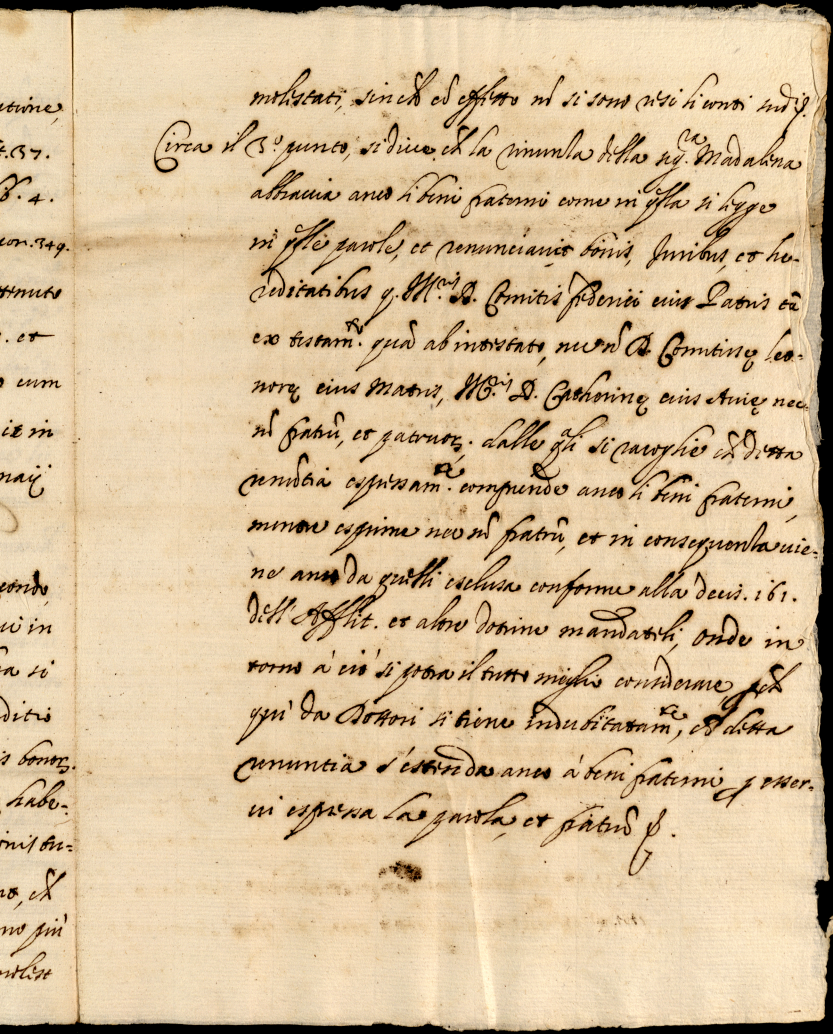 utione,
t. 37.
b. 4.
con. 349.
ttenuto
. et
o cum
it in
naij
condo,
ui in
ra si
ditio
is bonor.
habe-
onistu-
no, ch
no più
molest
molestati, sin ch cō effetto nō si sono resi li conti sudi.
Circa il 3.º punto, si dice ch la rinuntia della sig.ra Madalena
abbraccia anco li beni fraterni come in qlla si legge
in qlle parole, et renunciavit bonis, Juribus, et he-
reditatibus q. M. D. Comitis Federici eius Patris tā
ex testam.to quā ab intestato, nec nō D. Comitisse Leo-
nore eius Matris, M. D. Catherine eius Avie nec
nō fratrū, et patruor. dalle qli si raccoglie ch detta
renūtia espressam.te comprende anco li beni fraterni,
mentre esprime nec nō fratrū, et in consequenza vie-
ne anco da quelli esclusa conforme alla decis. 161.
dell'Afflit. et altre dotrine mandateli, onde in
torno a ciò si potrà il tutto meglio considerare, p ch
quì da Dottori si tiene indubitatam.te, ch detta
renuntia s'estenda anco à beni fraterni p esser-
vi espressa la parola, et fratrū